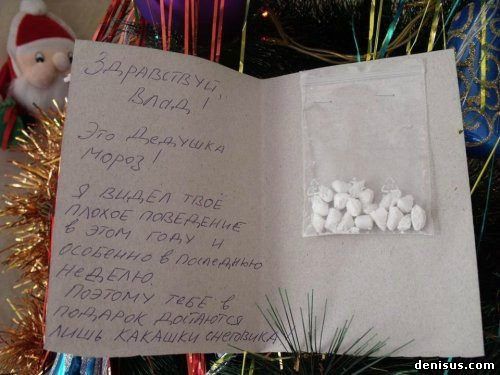 Здравствуй,
Влад!
Это Дедушка
Мороз!
Я видел твоё
плохое поведение
в этом году и
особенно в последнюю
неделю.
Поэтому тебе в
подарок достаются
лишь какашки снеговика
denisus.com